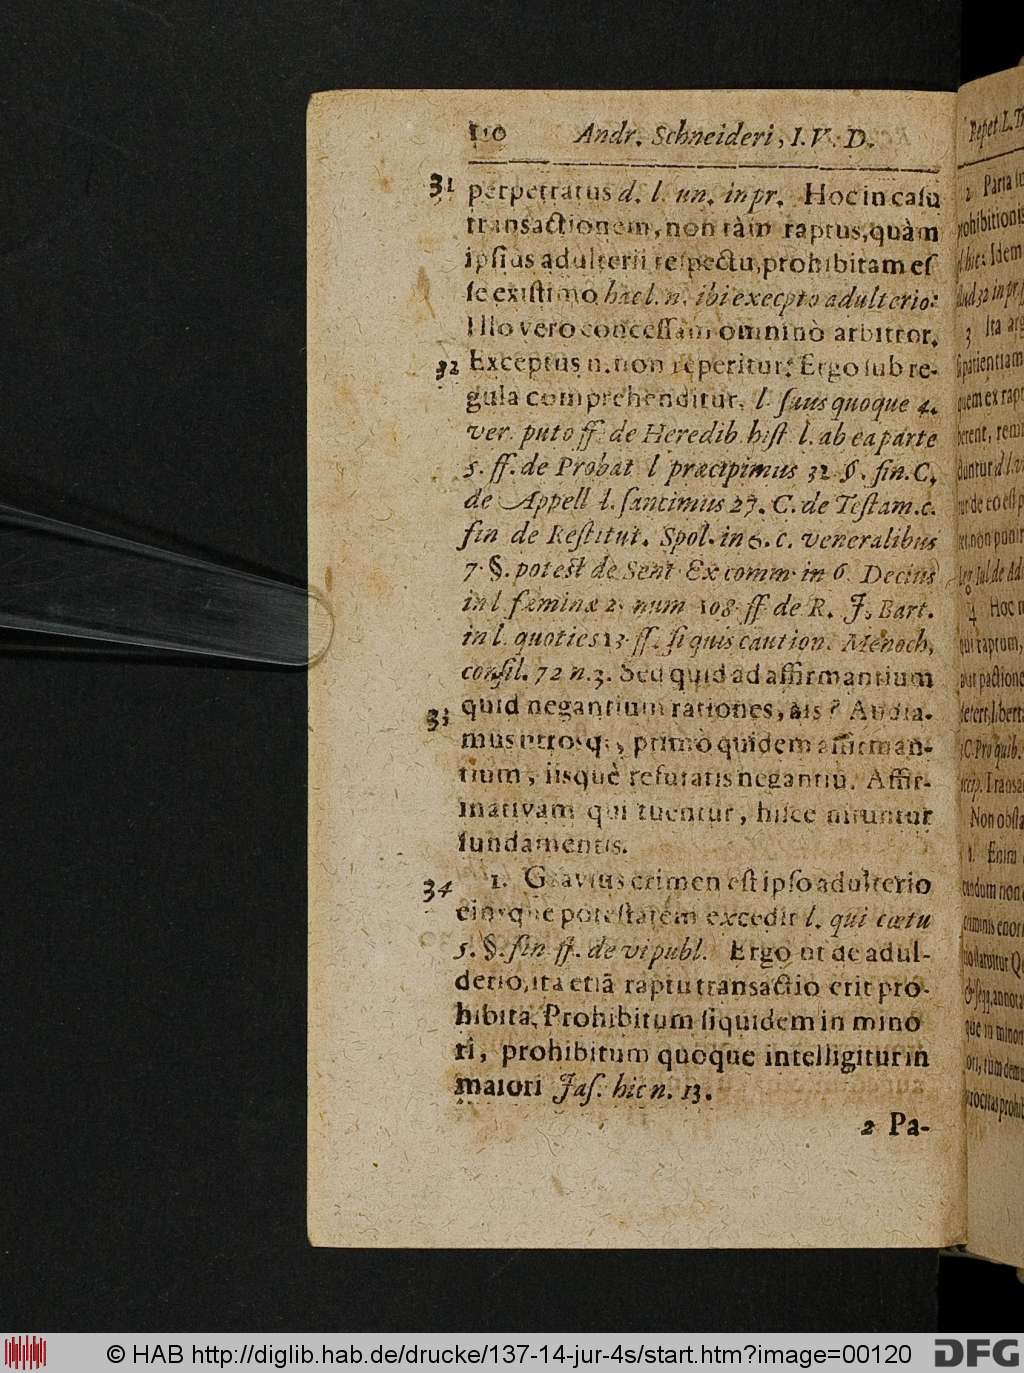 110 Andr. Schneideri, I. V. D.
31 perpetratus d. l. un. in pr. Hoc in casu
transactionem, non tàm raptus, quàm
ipsius adulterii respectu, prohibitam es
se existimo hac l. n. ibi execpto adulterio:
Illo vero concessam omninò arbitror.
32 Exceptus n. non reperitur: Ergo sub re-
gula comprehenditur. l. suus quoque 4.
ver. puto ff. de Heredib. hist. l. ab ea parte
5. ff. de Probat l præcipimus 32 §. fin. C.
de Appell l. sancimus 27. C. de Testam. c.
fin de Restitut. Spol. in 6. c. veneralibus
7. §. potest de Sent Excomm. in 6. Decius
in l. fæminæ 2. num 108. ff de R. J. Bart.
in l. quoties 13. ff. si quis caution. Menoch,
consil. 72 n. 3. Sed quid ad affirmantium
33 quid negantium rationes, ais? Audia-
mus utrosq;, primò quidem affirman-
tium, iisquè refutatis negantiū. Affir-
mativam qui tuentur, hisce nituntur
fundamentis.
34 1. Gravius crimen est ipso adulterio
eiusque potestatem excedit l. qui cœtu
5. §. fin ff. de vi publ. Ergo ut de adul-
derio, ita etiā raptu transactio erit pro-
hibita, Prohibitum siquidem in mino
ri, prohibitum quoque intelligitur in
maiori Jas. hic n. 13.
2 Pa-
Repet. L. Tr
2 Parta
prohibitionis
Idem
3 Ita
patientiam
quem ex rapt
non puni
4 Hoc
qui raptum,
aut pactione
C. Pro quib.
Transa
Non obsta
1. Enim
que in minor
© HAB http://diglib.hab.de/drucke/137-14-jur-4s/start.htm?image=00120
DFG